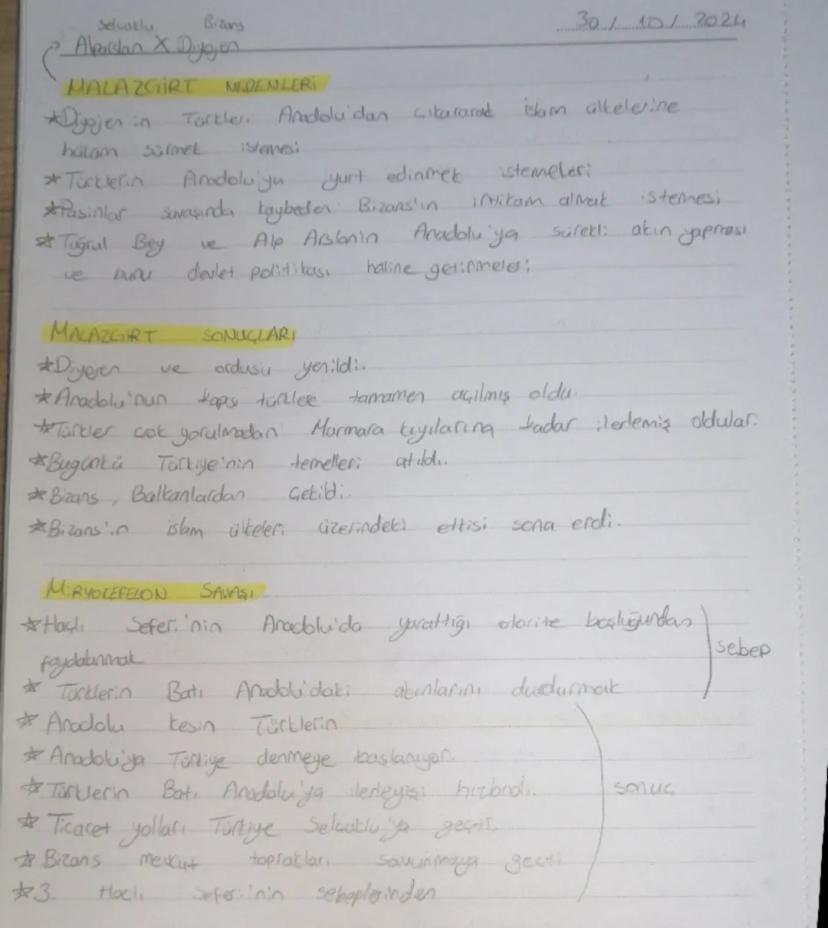 Selçuklu Bizans
30/10/2024
Alparslan X Diyojen
MALAZGİRT NEDENLERİ
*Diyojenin Türkleri Anadolu'dan çıkararak islam ülkelerine
hakim sürmek istemesi
*Türklerin Anadolu'yu yurt edinmek istemeleri
*Pasinler savaşında kaybeden Bizans'ın intikam almak istemesi
*Tuğrul Bey ve Alp Arslanın Anadolu'ya sürekli akın yapması
ve bunu devlet politikası haline getirmeleri
MALAZGİRT SONUÇLARI
*Diyojen ve ordusu yenildi.
*Anadolu'nun kapısı türklere tamamen açılmış oldu.
*Türkler çok yorulmadan Marmara kıyılarına kadar ilerlemiş oldular.
*Bugünkü Türkiye'nin temelleri atıldı.
*Bizans, Balkanlardan çekildi.
*Bizans'ın islam ülkeleri üzerindeki etkisi sona erdi.
MİRYOKEFELON SAVAŞI
*Haçlı Seferi'nin Anadolu'da yarattığı otorite boşluğundan
faydalanmak
* Türklerin Batı Anadolu'daki akınlarını durdurmak
sebep
* Anadolu kesin Türklerin
* Anadolu'ya Türkiye denmeye başlanıyor.
* Türklerin Batı Anadolu'ya ilerleyişi hızlandı.
sonuç
* Ticaret yolları Türkiye Selçuklu'ya geçti.
* Bizans mevcut toprakları savunmaya geçti
*3. Haçlı Seferi'nin sebeplerinden